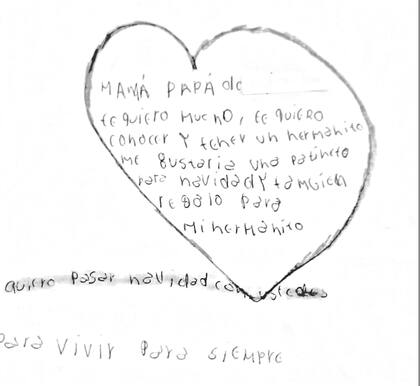 MAMÁ PAPÁ de
te quiero mucho, te quiero
conocer y tener un hermanito
me gustaria una patineta
para navidad y tambien
regalo para
mi hermanito
quiero pasar navidad con ustedes
para vivir para siempre